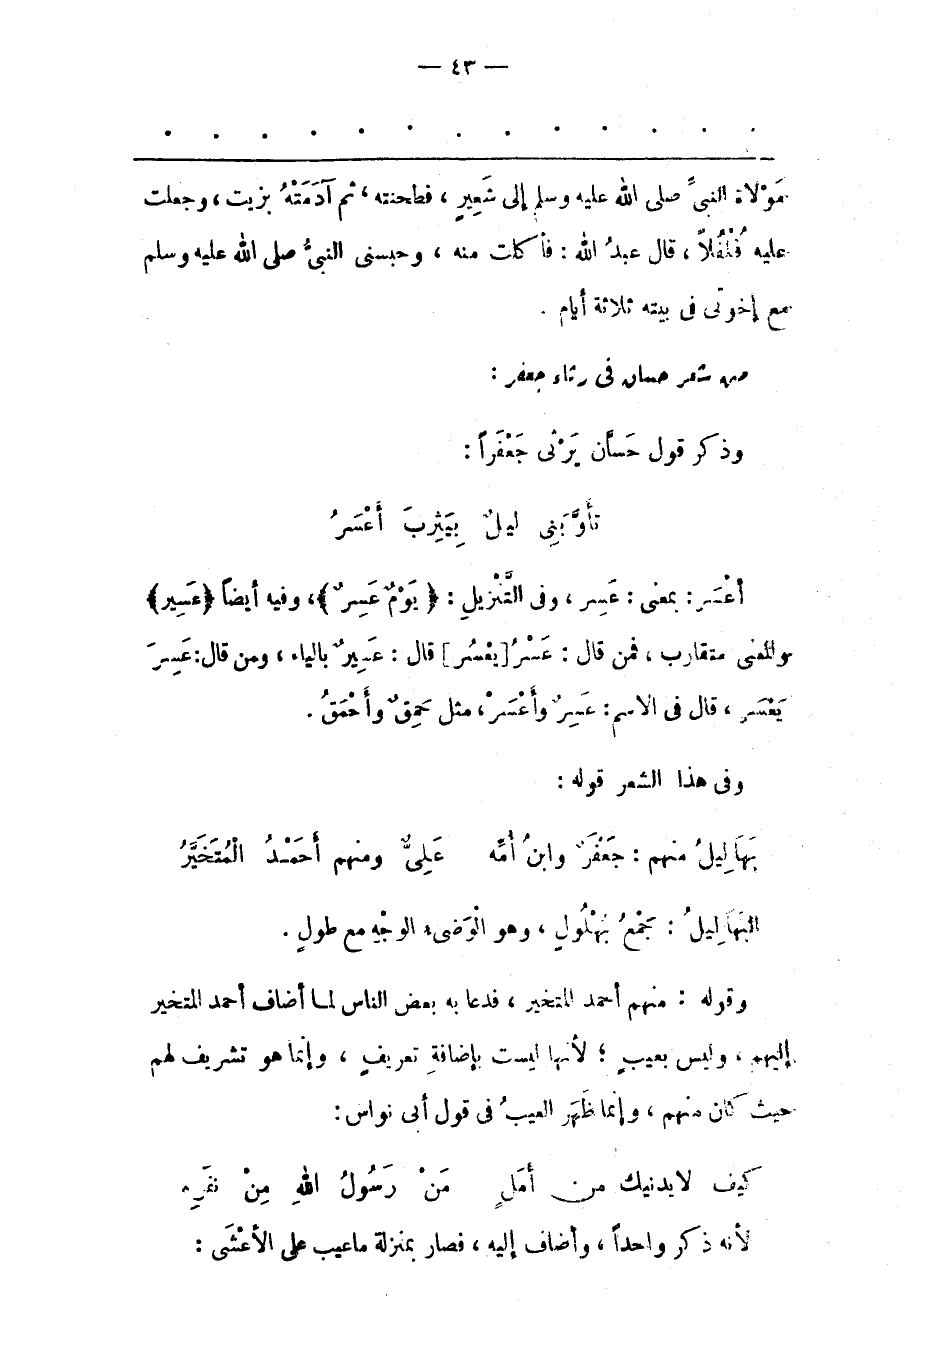 — ٤٣ —
. . . . . . . . . . . . .
مَوْلاة النبىِّ صلى الله عليه وسلم إلى شَعِيرٍ ، فطحنته ، ثم آدَمَتْهُ بزيت ، وجعلت
عليه فُلْفُلاً ، قال عبدُ الله : فأكلت منه ، وحبسنى النبىُّ صلى الله عليه وسلم
مع إخوتى فى بيته ثلاثة أيام .
من شعر حسان فى رثاء جعفر :
وذكر قول حَسَّان يَرْثى جَعْفَراً :
تأَوَّبَنِى ليلٌ بِيَثرِبَ أَعْسَرُ
أعْسَر : بمعنى : عَسِر ، وفى التَّنْزيلِ : ﴿ يَوْمٌ عَسِرٌ ﴾، وفيه أيضاً ﴿عَسِير﴾
والمعنى متقارب ، فمن قال : عَسْرُ [يعْسُر] قال : عَسِيرٌ بالياء ، ومن قال: عَسِرَ
يَعْسَر ، قال فى الاسم : عَسِرٌ وأَعْسَرْ ، مثل حَمِقٌ وأَحْمَقُ .
وفى هذا الشعر قوله :
بَهَالِيلُ منهم : جَعْفَرٌ وابنُ أُمِّه عَلِىٌّ ومنهم أَحَمْدُ الْمُتَخَيَّرُ
البَهَالِيلُ : جَمْعُ بُهْلُولٍ ، وهو الْوَضىء الوجْهِ مع طولٍ .
وقوله : منهم أحمد المتخير ، فدعا به بعض الناس لما أضاف أحمد المتخير
إليهم ، وليس بعيبٍ ؛ لأنها ليست بإضافةِ تعريفٍ ، وإنما هو تشريف لهم
حيث كان منهم ، وإنما ظَهَر العيبُ فى قول أبى نواس :
كيف لايدنيك من أَمَلٍ مَنْ رَسُولُ اللهِ مِنْ نَفَرِه
لأنه ذكر واحداً ، وأضاف إليه ، فصار بمنزلة ماعيب على الأعْشَى :